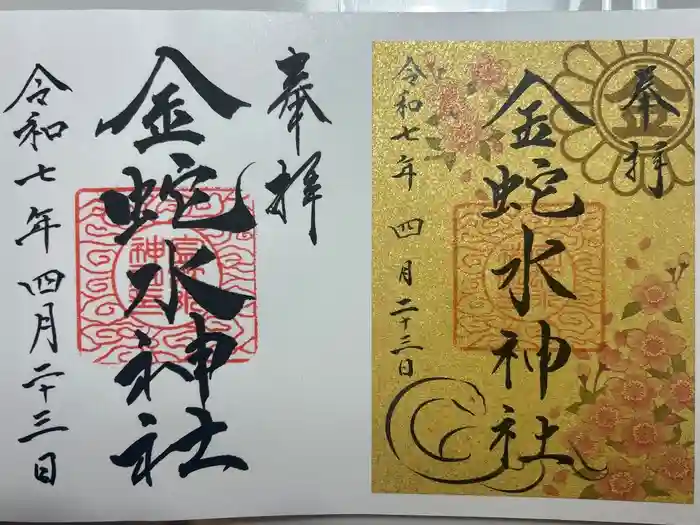 奉拝
金蛇水神社
令和七年四月二十三日
奉拝
金
金蛇水神社
令和七年 四月二十三日